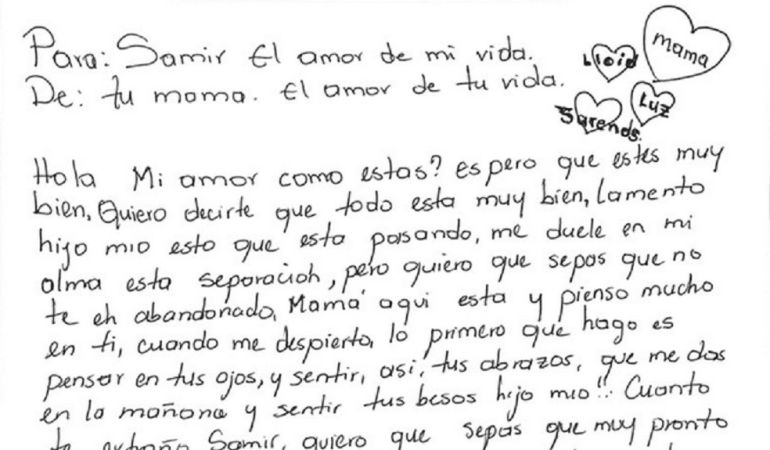 Para: Samir El amor de mi vida.
De: tu mama. El amor de tu vida.
mama
Lloid
Luz
Sarends.
Hola Mi amor como estas? espero que estes muy
bien, Quiero decirte que todo esta muy bien, Lamento
hijo mio esto que esta pasando, me duele en mi
alma esta separacion, pero quiero que sepas que no
te eh abandonado, Mamá aqui esta y pienso mucho
en ti, cuando me despierto, lo primero que hago es
pensar en tus ojos, y sentir, asi, tus abrazos, que me das
en la mañana y sentir tus besos hijo mio!! Cuanto
te extraño Samir, quiero que sepas que muy pronto